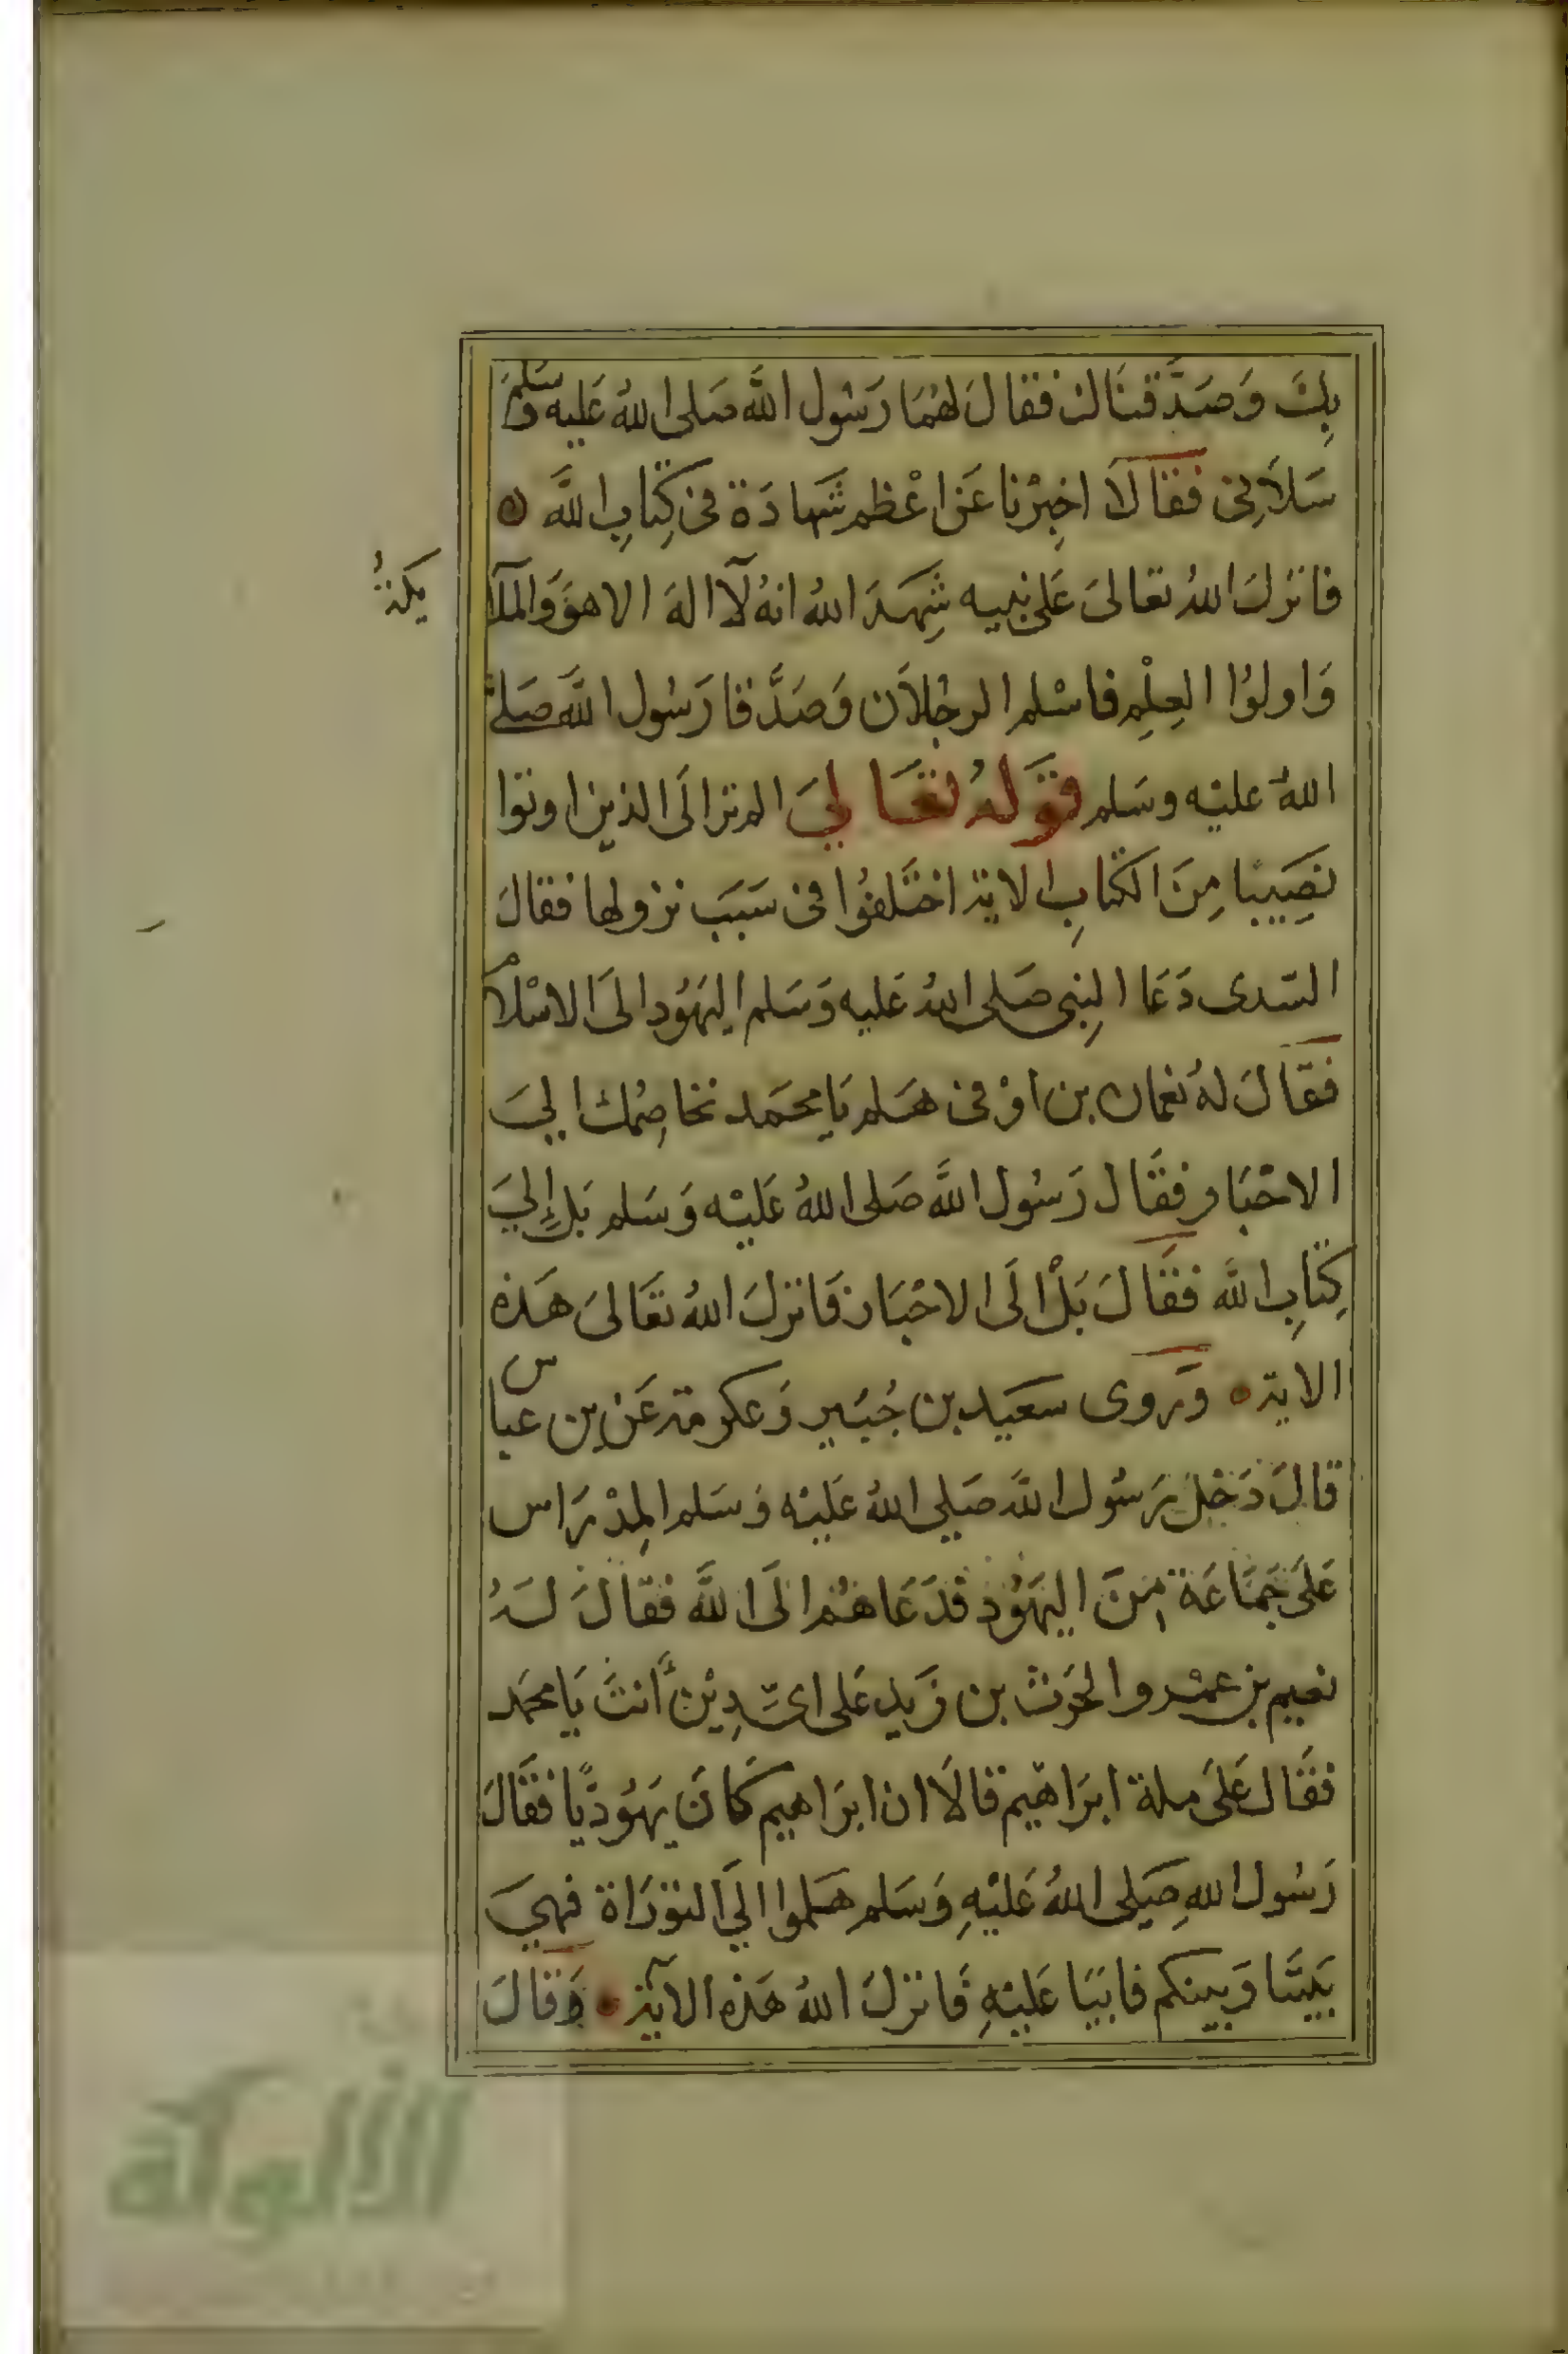 بِكَ وَصَدَّقنَاك فقالَ لهُمَا رَسُول اللَّه صَلى اللهُ عَليه وسَلم
سَلاَنِى فقالاَ اخبِرْنا عَن اعْظم شَهادَة فى كِتابِ اللَّه
فانزلَ اللهُ تعالىَ عَلى نبيه شَهِدَ اللهُ انهُ لآ الهَ الا هوَ وَالملآ
يكةُ
وَاولوُا العِلْمِ فاسْلم الرجُلاَن وَصَدَّقا رَسُول اللَّه صَلى
اللهُ عليْه وسَلم قوَلهُ تعَالىَ الم ترَ الَى الذين اوتوا
نصِيبًا مِنَ الكتابِ الاية اختَلفوُا فى سَبَبَ نزولها فقالَ
السّدى دَعَا النبِى صَلى اللهُ عَليه وَسَلم اليَهوُد الىَ الاسْلاَم
فقالَ لهُ نعمان بن اوْفى هَلم يَا محمَد نخاصِمُك الىَ
الاحْبَار فقَال رَسُول اللَّه صَلى اللهُ عَليْه وَسَلم بَل إِلىَ
كِتَابِ اللَّه فقَالَ بَلْ الَى الاحْبَار فَانزلَ اللهُ تعَالىَ هَذه
الاية ٥ وَروى سعَيد بن جُبَير وَعكرمة عَن بن عباس
قالَ دَخل رَسُول اللَّه صَلى اللهُ عَليْه وَسَلم المِدْرَاس
عَلىَ جَمَاعَة مِنَ اليَهوُد فدَعَاهُم الَى اللَّه فقالَ لَهُ
نعيم بن عمْرو والحَرث بن زَيد عَلى اىّ دِيْن أَنتَ يَا محمَد
فقَال عَلىَ ملة ابرَاهيم قالاَ ان ابرَاهيم كَانَ يَهوُديًّا فقَالَ
رَسُول اللهِ صَلى اللهُ عَليْهِ وَسَلم هَلموا الىَ التورَاة فهىَ
بَيننَا وَبينكم فابَيَا عَليْهِ فَانزلَ اللهُ هَذه الآية ٥ وَقالَ
الألوكة